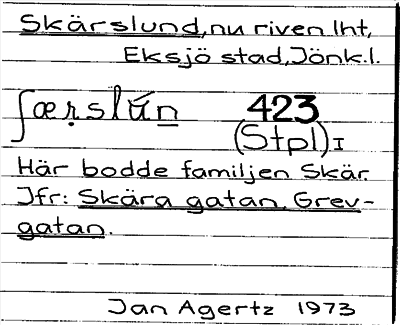 Skärslund, nu riven lht,
Eksjö stad, Jönk.l.
ʃæṛslún 423
(Stpl) I
Här bodde familjen Skär.
Jfr: Skära gatan, Grev-
gatan.
Jan Agertz 1973